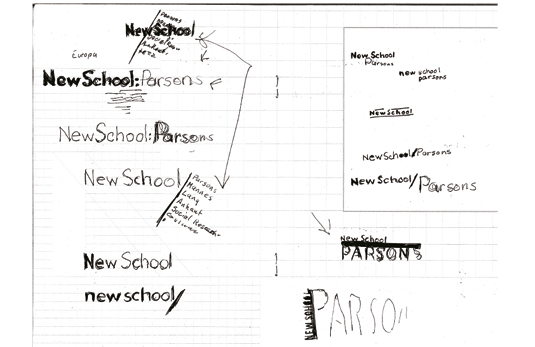 NewSchool
Parsons
Europa
NewSchool:Parsons
NewSchool:Parsons
New School
Parsons
Mannes
Lang
Social Research
New School
new school/
New School
Parsons
new school
parsons
New School
NewSchool/Parsons
NewSchool/Parsons
New School
PARSONS
NEW SCHOOL
PARSON